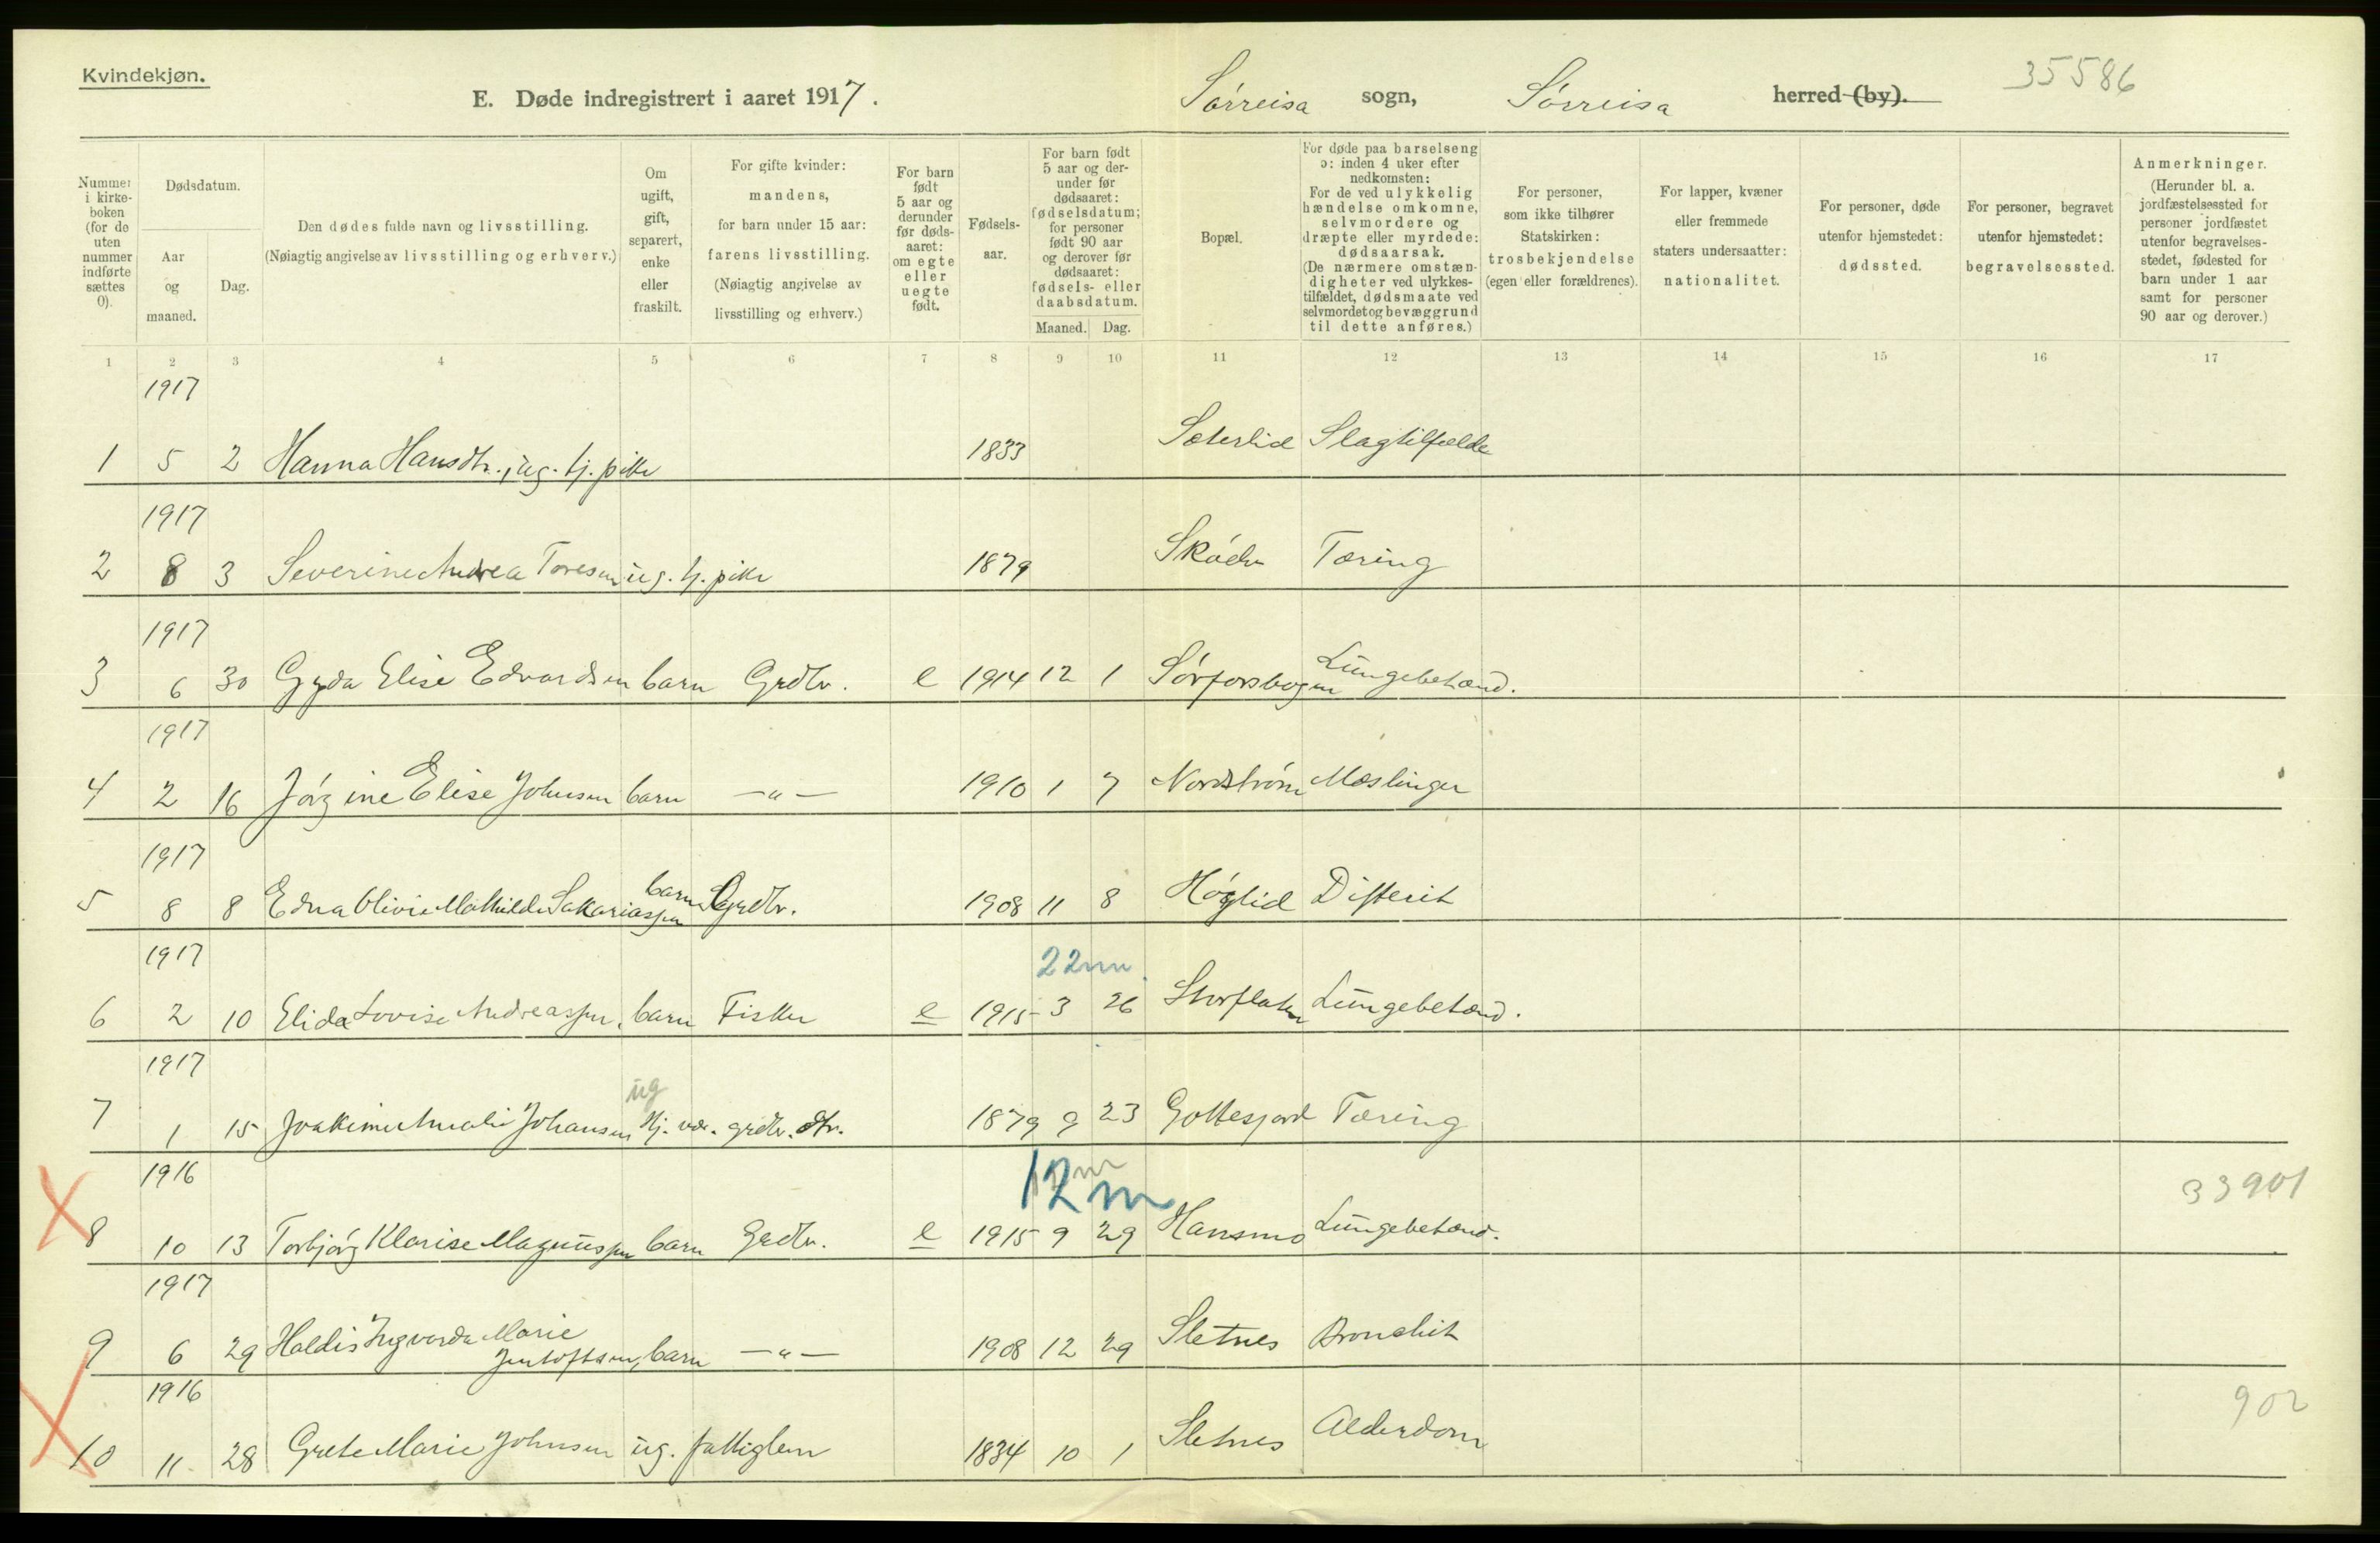 Kvindekjøn.
E. Døde indregistrert i aaret 1917.
Sørreisa sogn, Sørreisa herred (by).
35586
Nummer i kirkeboken (for de uten nummer indførte sættes 0).
Dødsdatum.
Aar og maaned.
Dag.
Den dødes fulde navn og livsstilling.
(Nøiagtig angivelse av livsstilling og erhverv.)
Om ugift, gift, separert, enke eller fraskilt.
For gifte kvinder: mandens, for barn under 15 aar: farens livsstilling.
(Nøiagtig angivelse av livsstilling og erhverv.)
For barn født 5 aar og derunder før dødsaaret: om egte eller uegte født.
Fødselsaar.
For barn født 5 aar og derunder før dødsaaret: fødselsdatum; for personer født 90 aar og derover før dødsaaret: fødsels- eller daabsdatum.
Maaned. Dag.
Bopæl.
For døde paa barselseng ɔ: inden 4 uker efter nedkomsten:
For de ved ulykkelig hændelse omkomne, selvmordere og dræpte eller myrdede: dødsaarsak.
(De nærmere omstændigheter ved ulykkestilfældet, dødsmaate ved selvmordet og bevæggrund til dette anføres.)
For personer, som ikke tilhører Statskirken: trosbekjendelse (egen eller forældrenes).
For lapper, kvæner eller fremmede staters undersaatter: nationalitet.
For personer, døde utenfor hjemstedet: dødssted.
For personer, begravet utenfor hjemstedet: begravelsessted.
Anmerkninger.
(Herunder bl. a. jordfæstelsessted for personer jordfæstet utenfor begravelsesstedet, fødested for barn under 1 aar samt for personer 90 aar og derover.)
1 2 3 4 5 6 7 8 9 10 11 12 13 14 15 16 17
1917
1 5 2 Hanna Hansdtr., ug. tj. pike 1833 Sæterlid Slagtilfælde
1917
2 8 3 Severine Andrea Toresen ug. tj. pike 1879 Tæring
1917
3 6 30 Gyda Elise Edvardsen barn Grdbr. e 1914 12 1 Sørforsbogen Lungebetænd.
1917
4 2 16 Jørgine Elise Johnsen barn —"— 1910 1 7 Nordstrøm Mæslinger
1917
5 8 8 Edna Olivie Mathilde Sakariassen barn Grdbr. 1908 11 8 Høglid Difterit
1917
22 m
6 2 10 Elida Lovise Andreassen, barn Fisker e 1915 3 26 Storflaten Lungebetænd.
1917
ug
7 1 15 Joakime Amalie Johansen Hj. vær. grdbr. dtr. 1879 9 23 Gottesjord Tæring
1916
12 m m
33901
8 10 13 Torbjørg Klarise Magnussen barn Grdbr. e 1915 9 29 Hansmo Lungebetænd.
1917
9 6 29 Haldis Ingvarda Marie Jentoftsen, barn —"— 1908 12 29 Sletnes Bronchit
1916
902
10 11 28 Grete Marie Johnsen ug. fattiglem 1834 10 1 Sletnes Alderdom